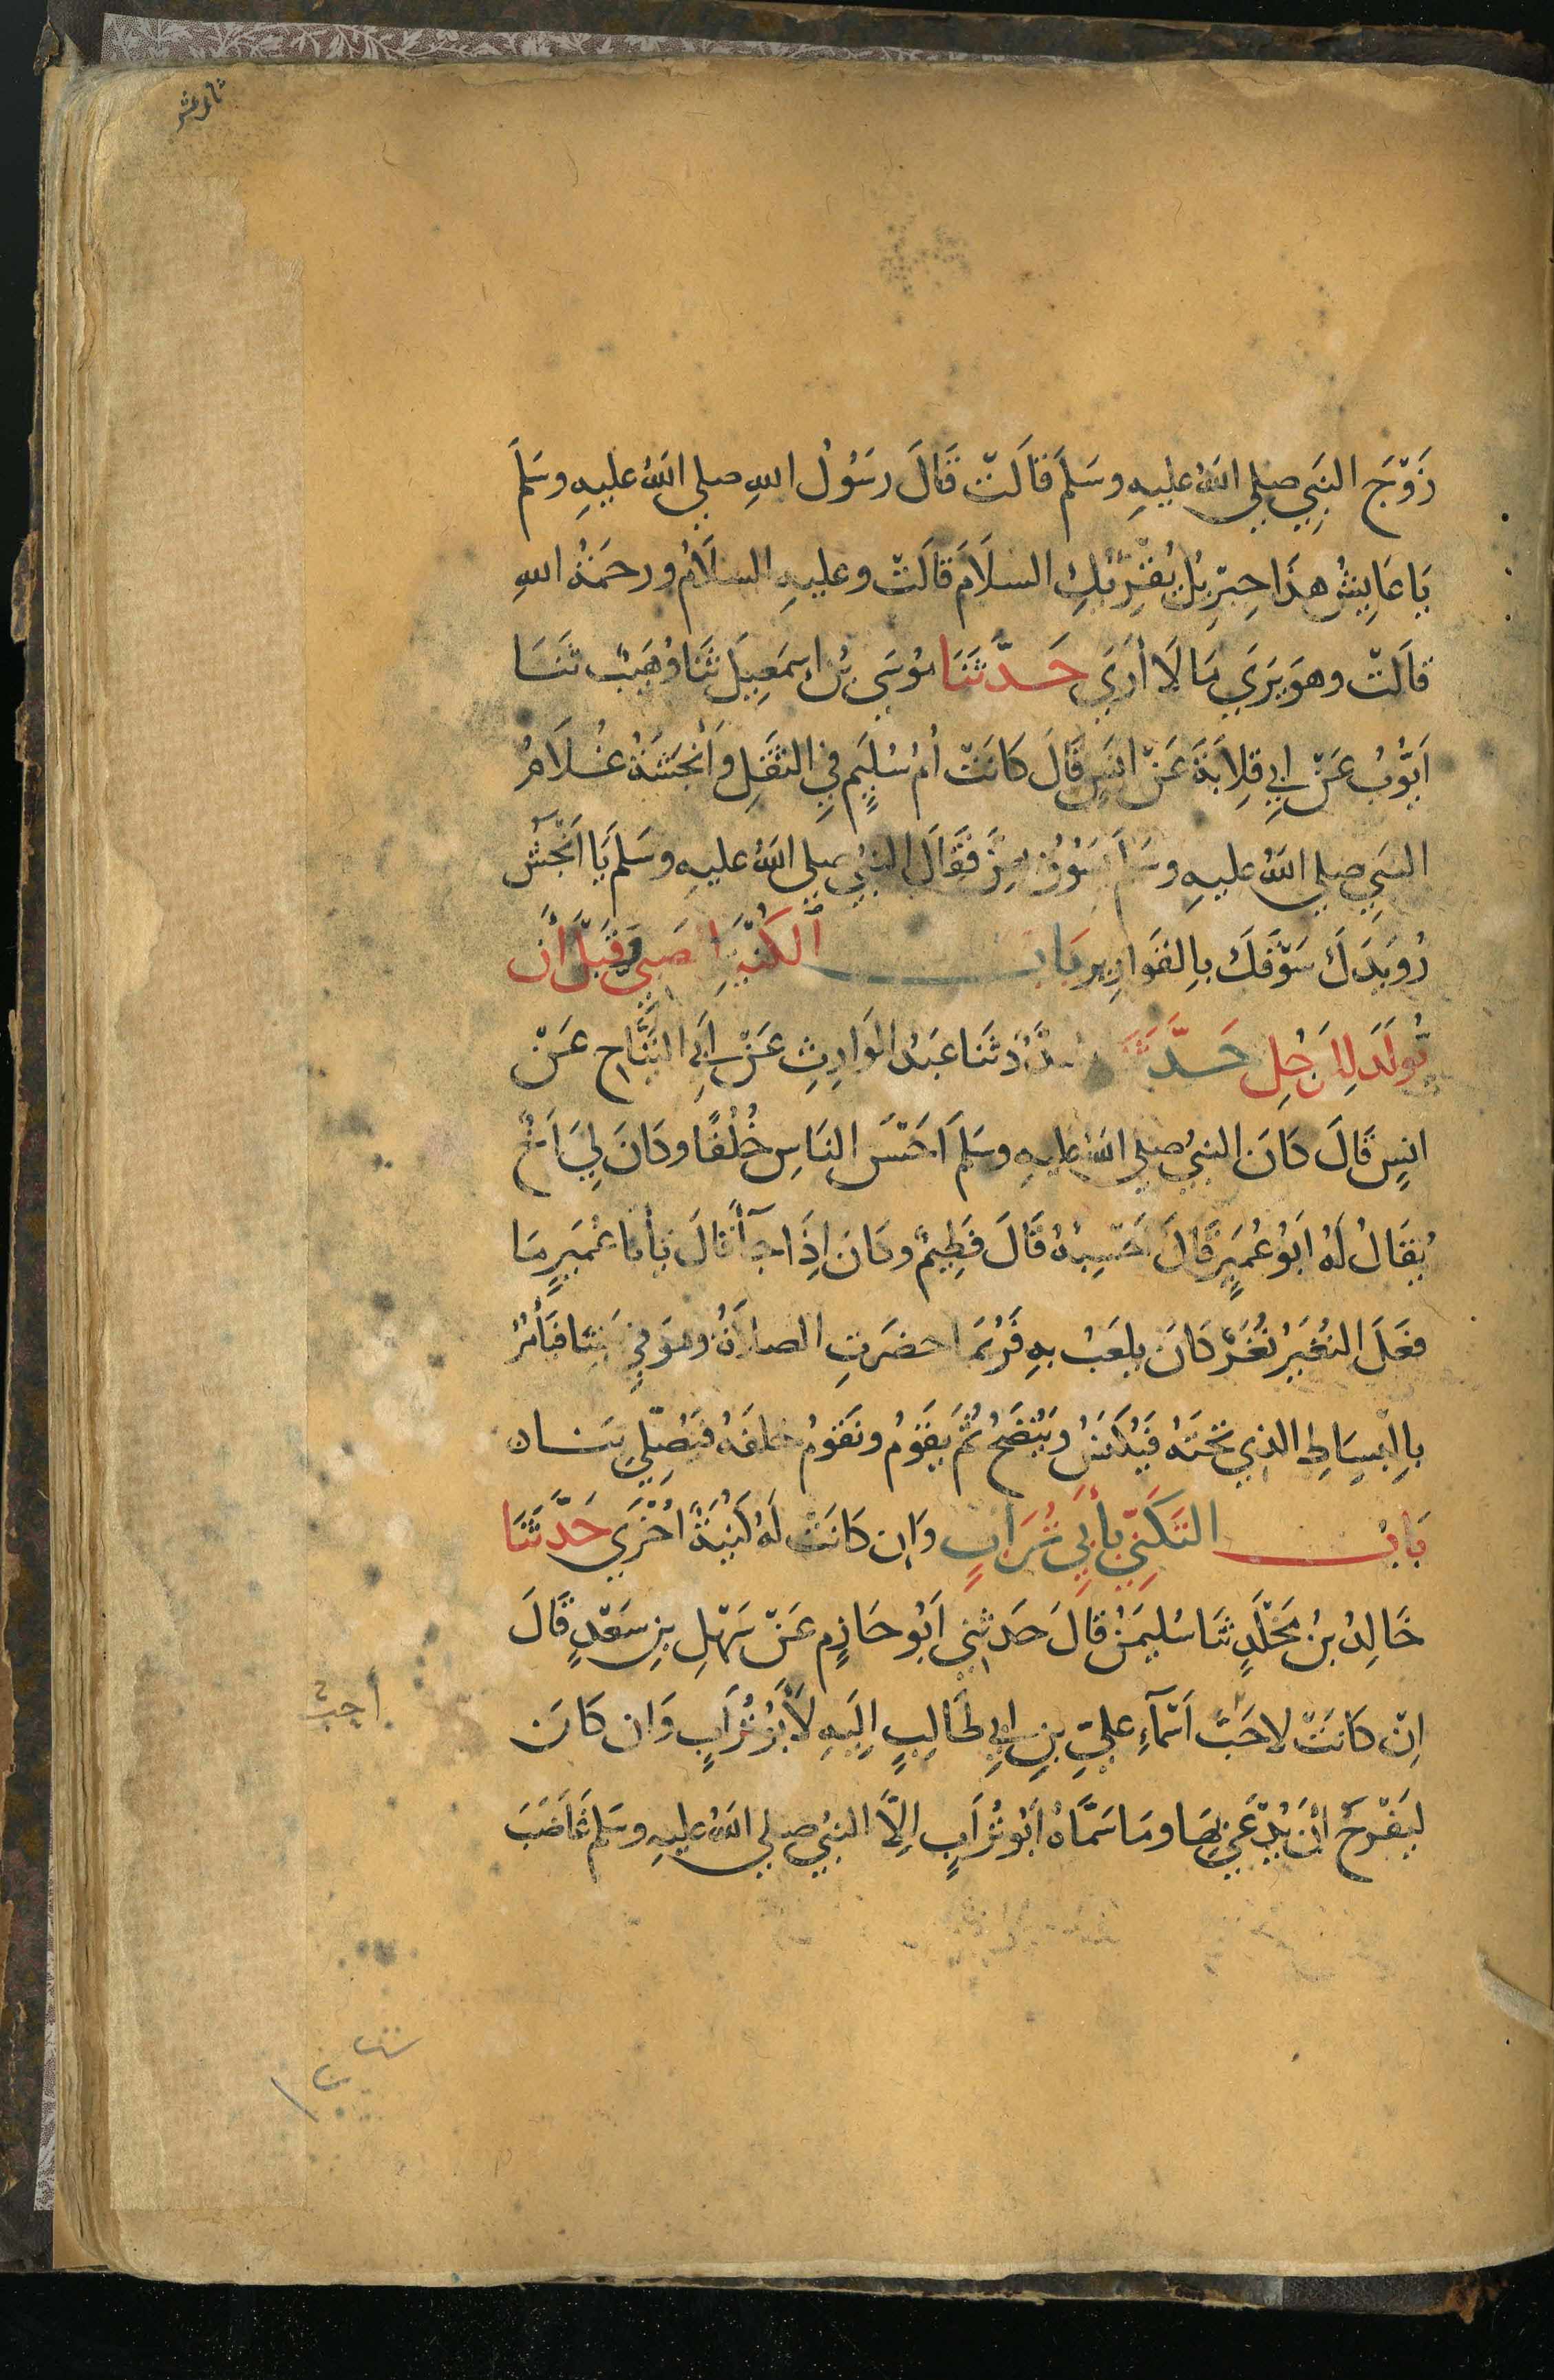 ثاني عشر
زَوْجَ النَبِي صلى اللهُ عليهِ وسَلَمَ قالَتْ قَالَ رسَوُلُ اللهِ صلى اللهُ عليهِ وسَلَمَ
يَا عَايِشُ هذَا جِبْرِيلُ يُقْرِئُكِ السلَامَ قالَتْ وعليهِ السلَامُ ورحمَةُ اللهِ
قالَتْ وهوَ يَرَي مَا لَا أرَي حَدَّثَنَا مُوسَى بْنُ اِسمَعِيلَ ثَنَا وُهَيبٌ ثَنَا
اَيّوُبُ عَنْ ابي قِلابَةَ عَنْ انَسٍ قَالَ كانَتْ اُمُ سُلَيمٍ في الثَقَلِ وَأنْجَشَةُ غُلَامُ
النبي صلى اللهُ عليهِ وسَلَمَ يَسُوقُ بِهِنَّ فقَالَ النبيُ صلى اللهُ عليهِ وسَلَمَ يَا اَنْجَشُ
رُوَيدَكَ سَوْقَكَ بِالقَوارِيرِ بَابُ الكُنْيَةِ لِلصَبيِ وَقَبْلَ أنْ
تُولَدَ لِلرَجُلِ حَدَّثَنَا مسَدَّدٌ ثَنَا عَبدُ الوَارِثِ عَنْ اَبي التَيَّاحِ عَنْ
انسٍ قَالَ كَانَ النبيُ صلى اللهُ عليهِ وسَلَمَ اَحْسَنَ النَاسِ خُلُقًا وكَانَ لِي اَخٌ
يُقَالُ لَهُ اَبُو عُمَيرٍ قَالَ اَحْسِبُهُ قَالَ فَطِيمٌ وكَانَ اِذَا جَآءَ قَالَ يَا أبَا عُمَيرٍ مَا
فعَلَ النُغَيرُ نُغَرٌ كَانَ يلعَبُ بهِ فَرُبَمَا حضَرَتِ الصلاةُ وهوَ في بَيتِنَا فيَأْمُرُ
بِالبسَاطِ الذِي تحتَهُ فَيُكنَسُ ويُنْضَحُ ثُمَ يقَوُمُ ونقَوُمُ خلفَهُ فيُصَلِّي بِنَا
بَابُ التَكَنِّي بأبِي تُرَابٍ وَاِن كانَتْ لَهُ كُنيَةٌ اُخْرَي حَدَّثَنَا
خَالِدُ بنُ مَخْلَدٍ ثنَا سُليمَنُ قَالَ حَدثنِي اَبُو حَازِمٍ عَنْ سَهْلِ بنِ سَعْدٍ قَالَ
اِنْ كانَتْ لاحَبَّ اَسْمَآءِ عليِّ بنِ ابي طَالِبٍ اِلَيهِ لأبُو تُرَابٍ وَان كَانَ
أحبّ
ليَفْرَحُ أنْ يُدْعَي بِهَا ومَا سَمَّاهُ اَبُو تُرَابٍ اِلَّا النبيُ صلى اللهُ عليهِ وسَلَمَ غَاضَبَ